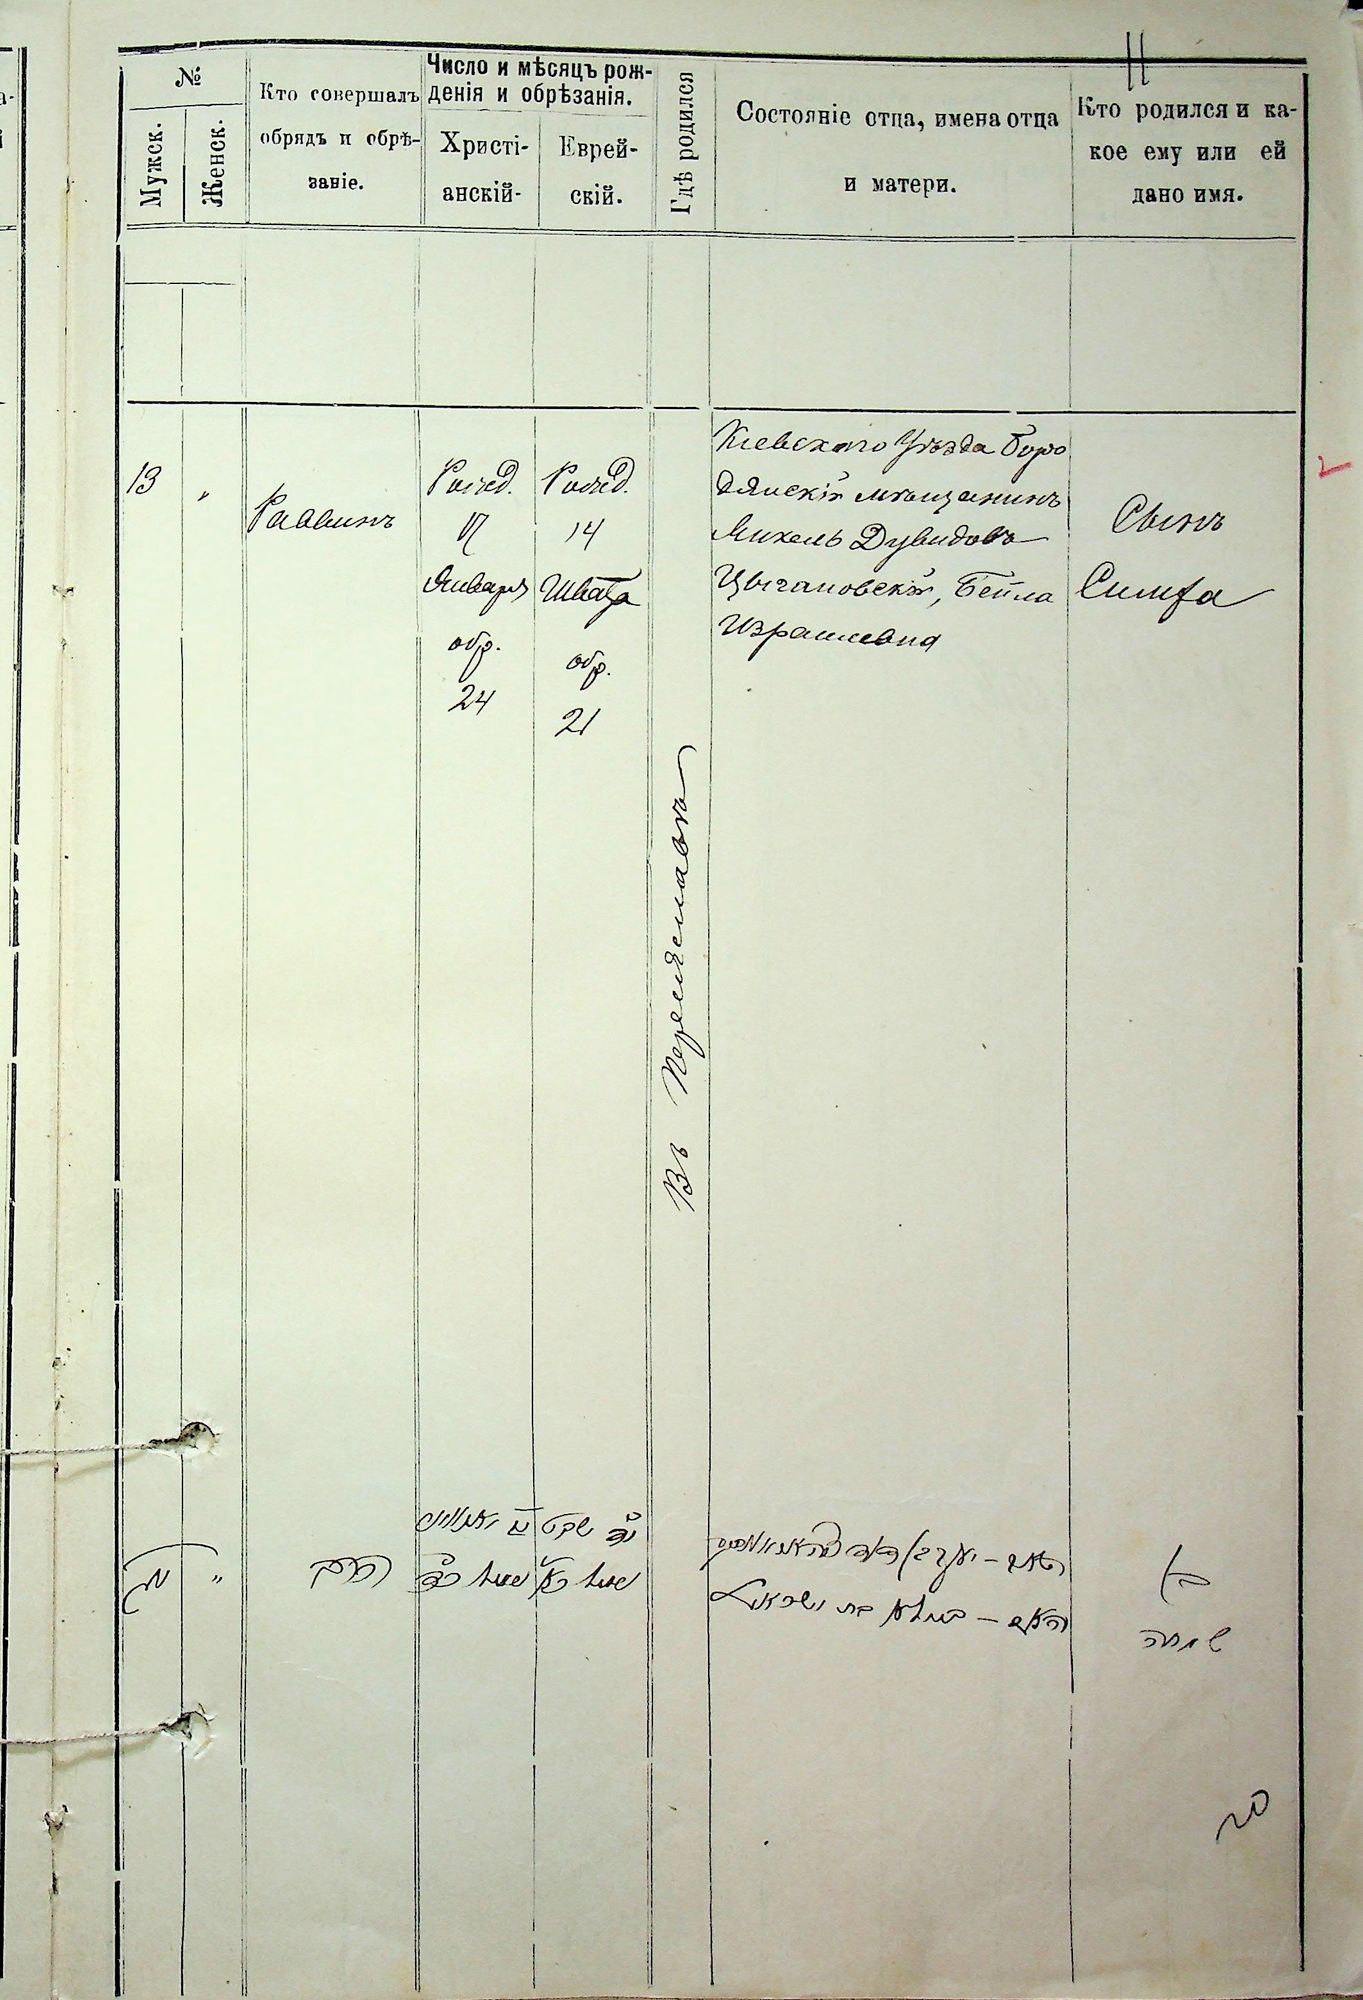 11
№
Мужск.
Женск.
Кто совершалъ
обрядъ и обрѣ-
заніе.
Число и мѣсяцъ рож-
денія и обрѣзанія.
Христі-
анскій-
Еврей-
скій.
Гдѣ родился
Состояніе отца, имена отца
и матери.
Кто родился и ка-
кое ему или ей
дано имя.
13
"
Раввинъ
Рожд.
17
Января
обр.
24
Рожд.
14
Швата
обр.
21
Въ Переяславѣ
Кіевскаго Уѣзда Боро
дянскій мѣщанинъ
Янкель Дувидовъ
Цыгановскій, Бейла
Израилевна
Сынъ
Симха
"
הרב
בן
שמחה